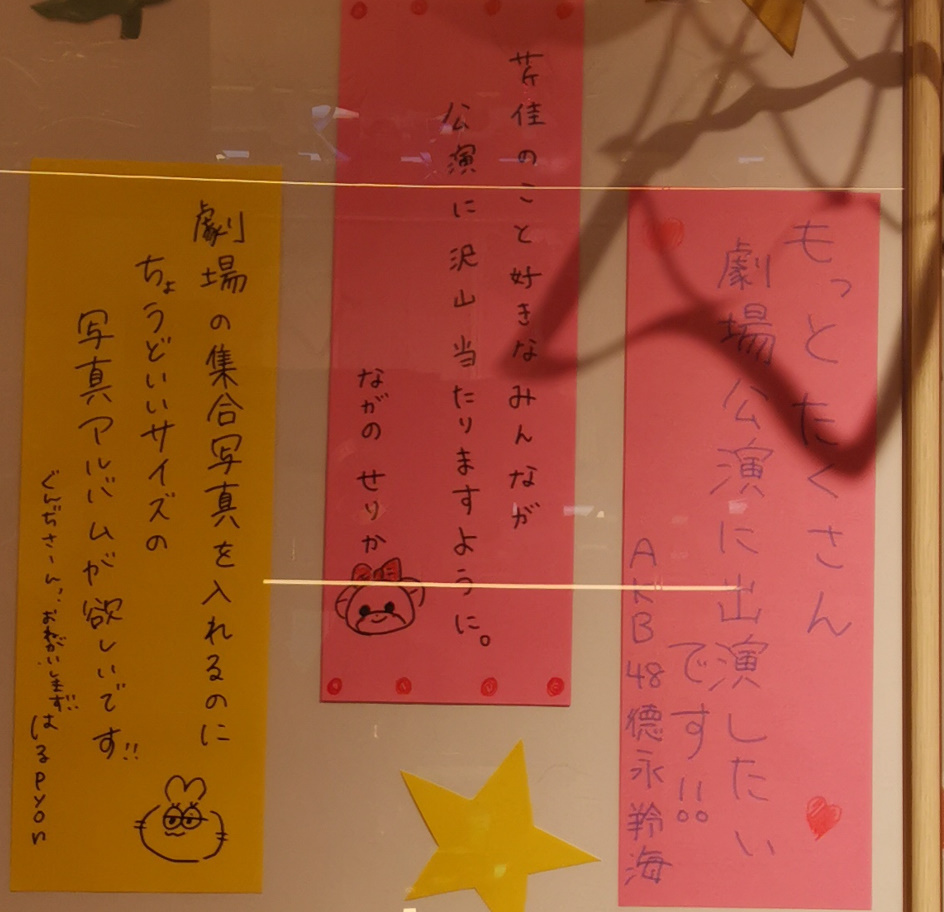 もっとたくさん
劇場公演に出演したい
です!!
AKB48 德永羚海
芹佳のこと好きなみんなが
公演に沢山当たりますように。
ながの せりか
劇場の集合写真を入れるのに
ちょうどいいサイズの
写真アルバムが欲しいです!!
ぐんぢさーんっ、おねがいします!!
はるpyon